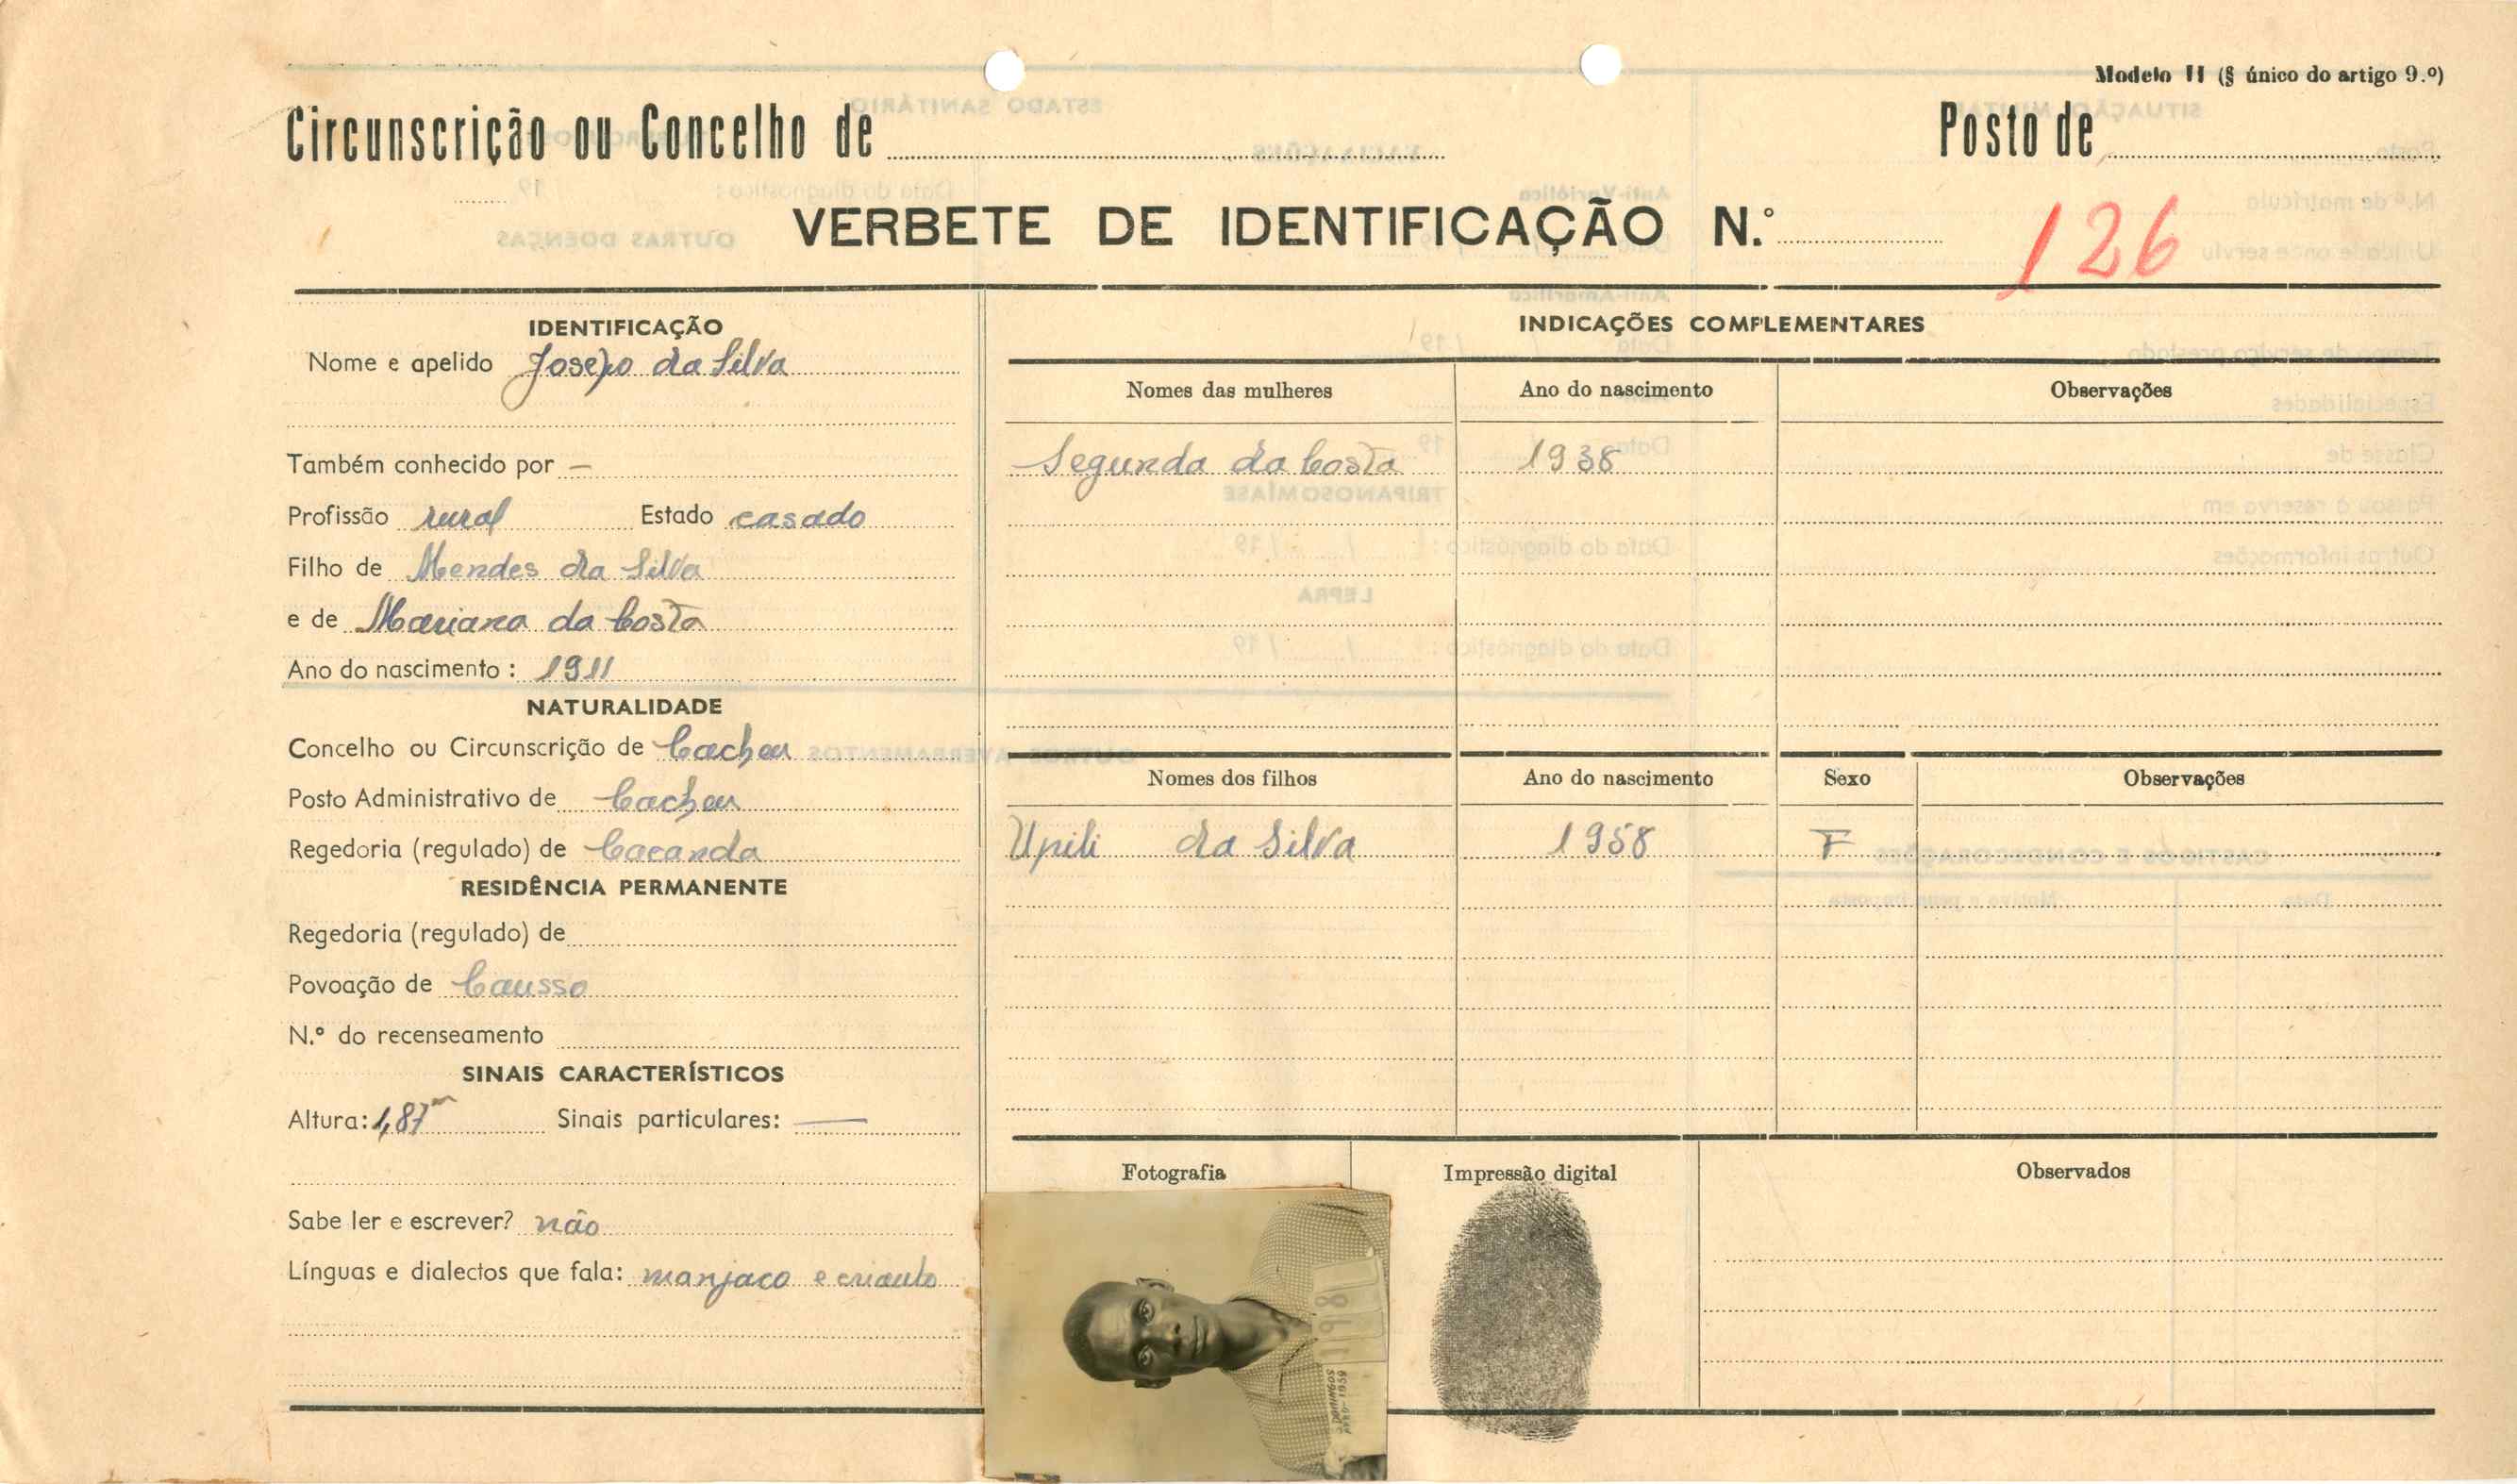 Modelo II (§ único do artigo 9.º)
Circunscrição ou Concelho de
Posto de
VERBETE DE IDENTIFICAÇÃO N.º 126
IDENTIFICAÇÃO
Nome e apelido Josepo da Silva
Também conhecido por —
Profissão rural Estado casado
Filho de Mendes da Silva
e de Mariana da Costa
Ano do nascimento : 1911
NATURALIDADE
Concelho ou Circunscrição de Cacheu
Posto Administrativo de Cacheu
Regedoria (regulado) de Cacanda
RESIDÊNCIA PERMANENTE
Regedoria (regulado) de
Povoação de Causso
N.º do recenseamento
SINAIS CARACTERÍSTICOS
Altura: 1,87m Sinais particulares: —
Sabe ler e escrever? não
Línguas e dialectos que fala: manjaco e crioulo
INDICAÇÕES COMPLEMENTARES
Nomes das mulheres Ano do nascimento Observações
Segunda da Costa 1938
Nomes dos filhos Ano do nascimento Sexo Observações
Upili da Silva 1958 F
Fotografia Impressão digital Observados
1198
DOMINGOS
1959